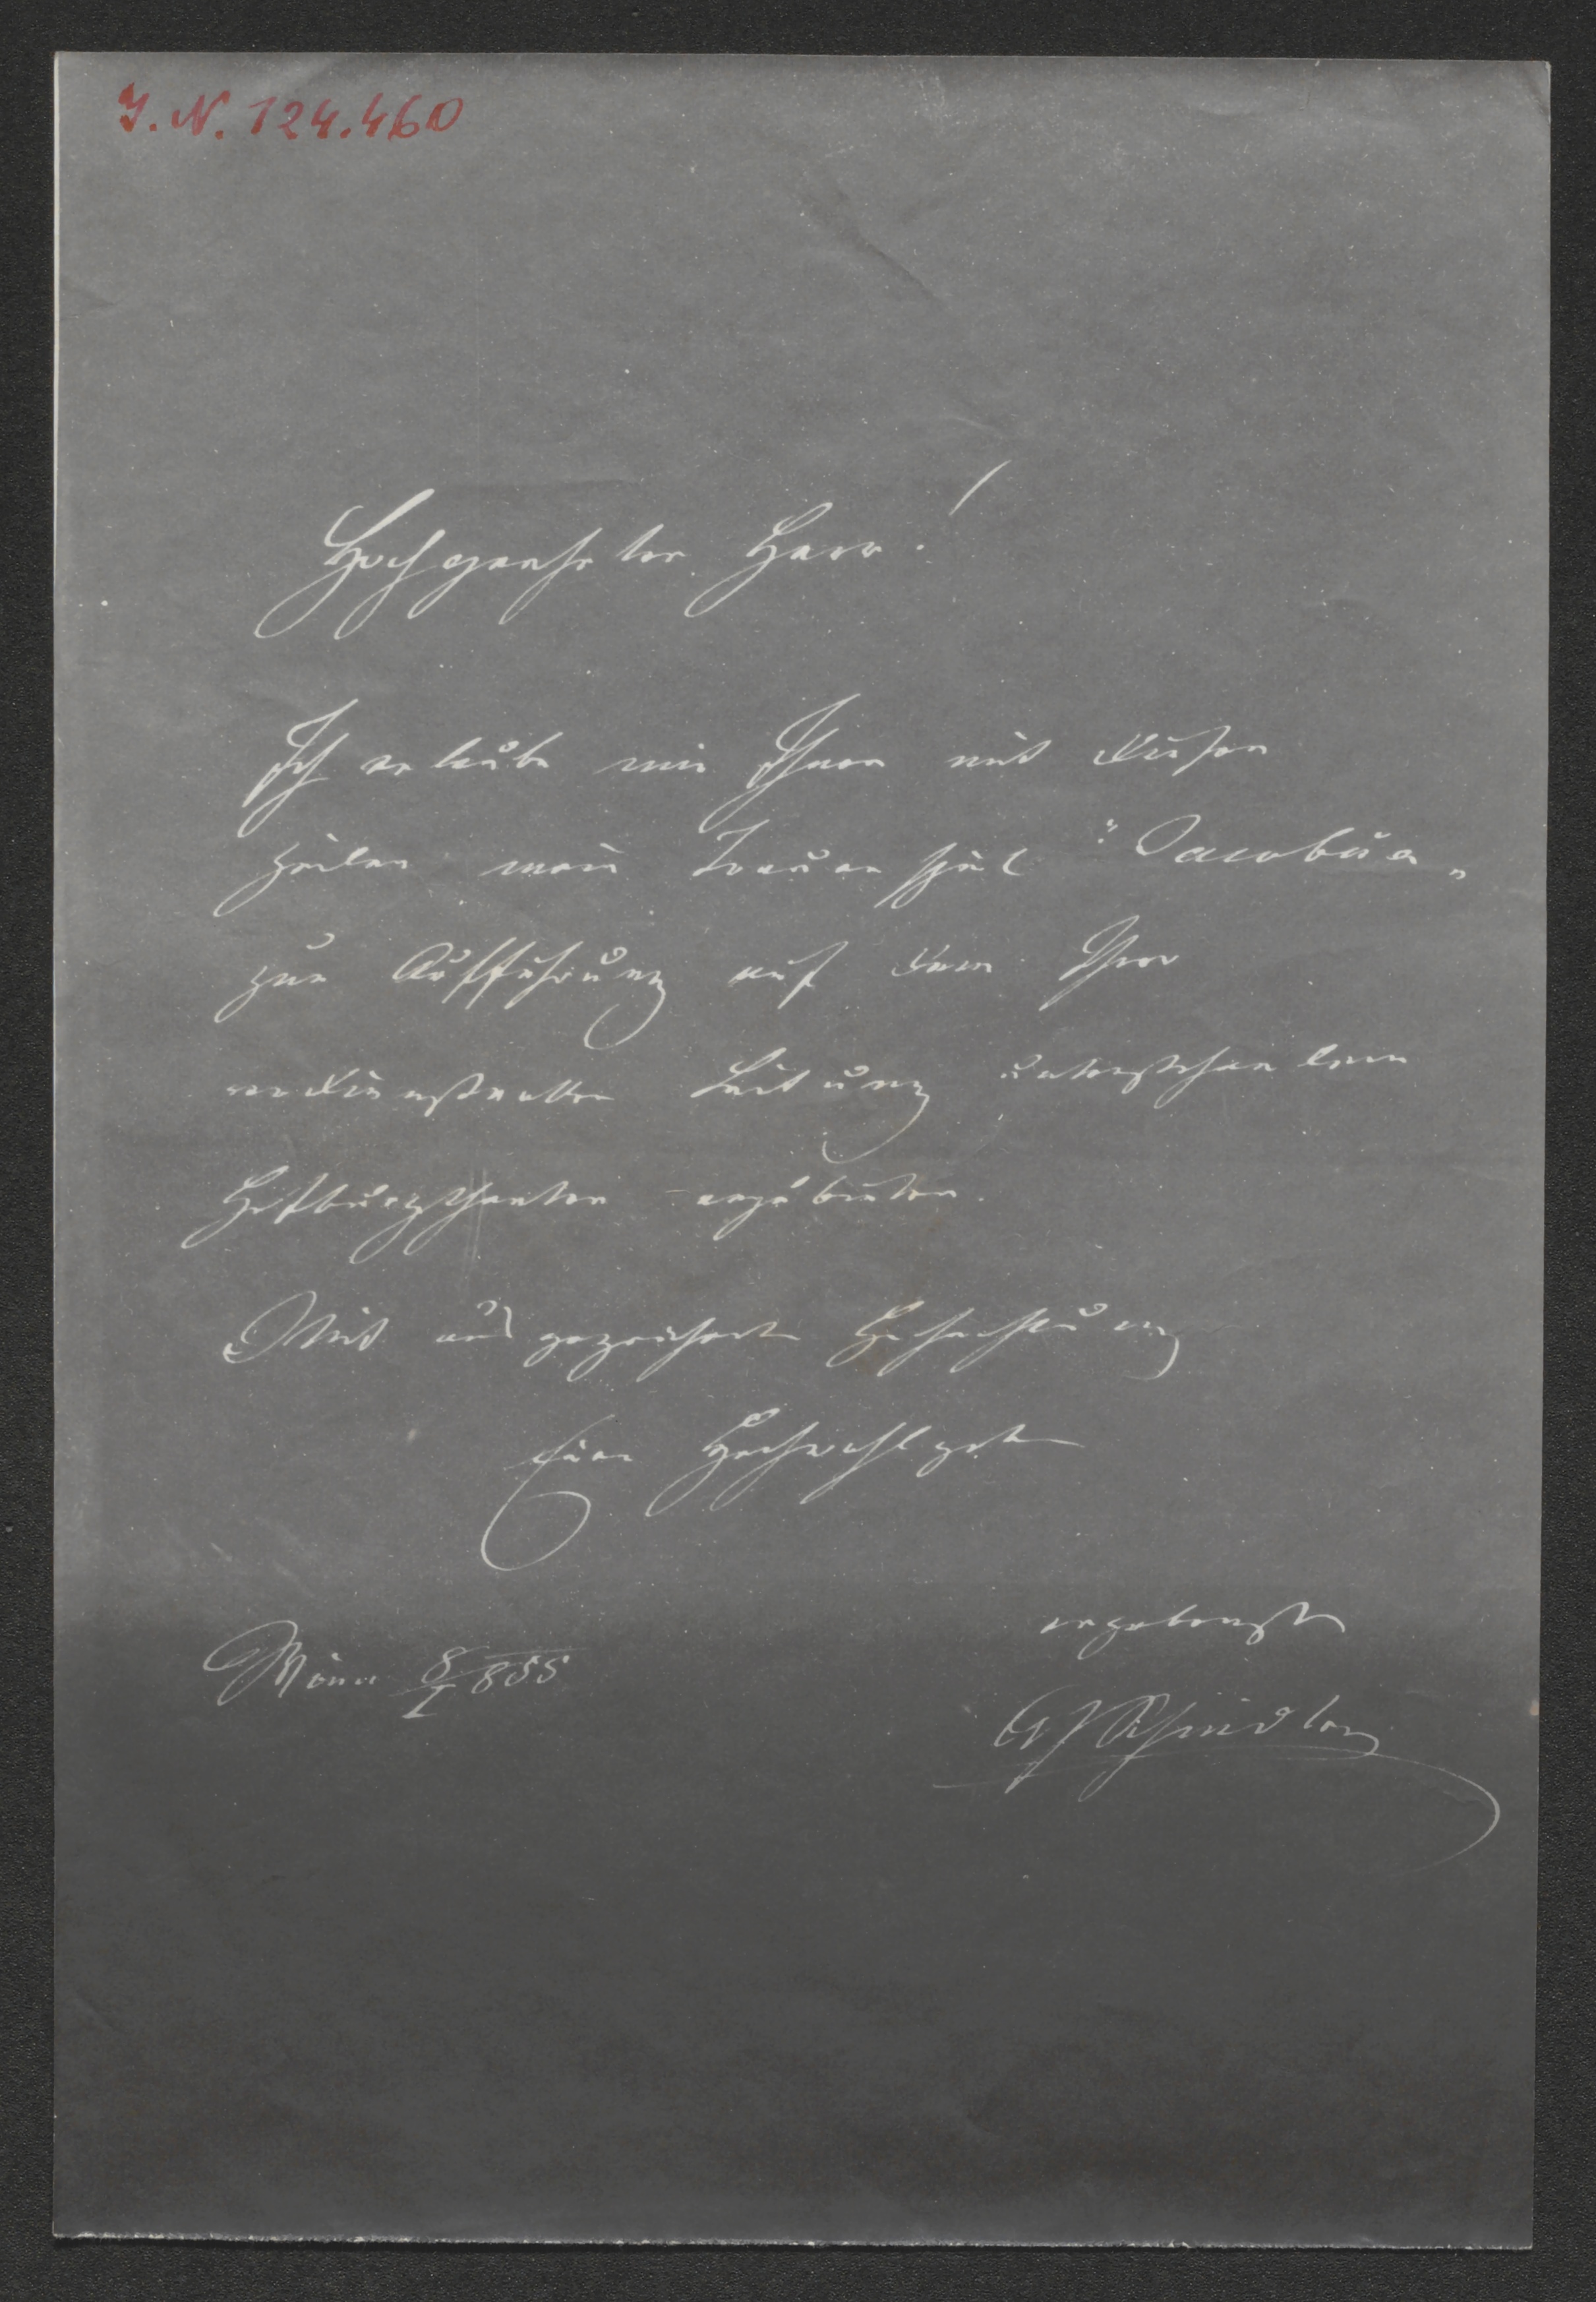 I. N. 124.460
Hochgeehrter Herr!
Ich erlaube mir Ihnen mit diesen
Zeilen mein Trauerspiel "Jacobäa„
zur Aufführung auf dem Ihrer
verdienstvollen Leitung unterstehenden
Hofburgtheater anzubieten.
Mit ausgezeichneter Hochachtung
Euer Hochwohlgeb
ergebenster
Wien 8/I 855
A J Schindler